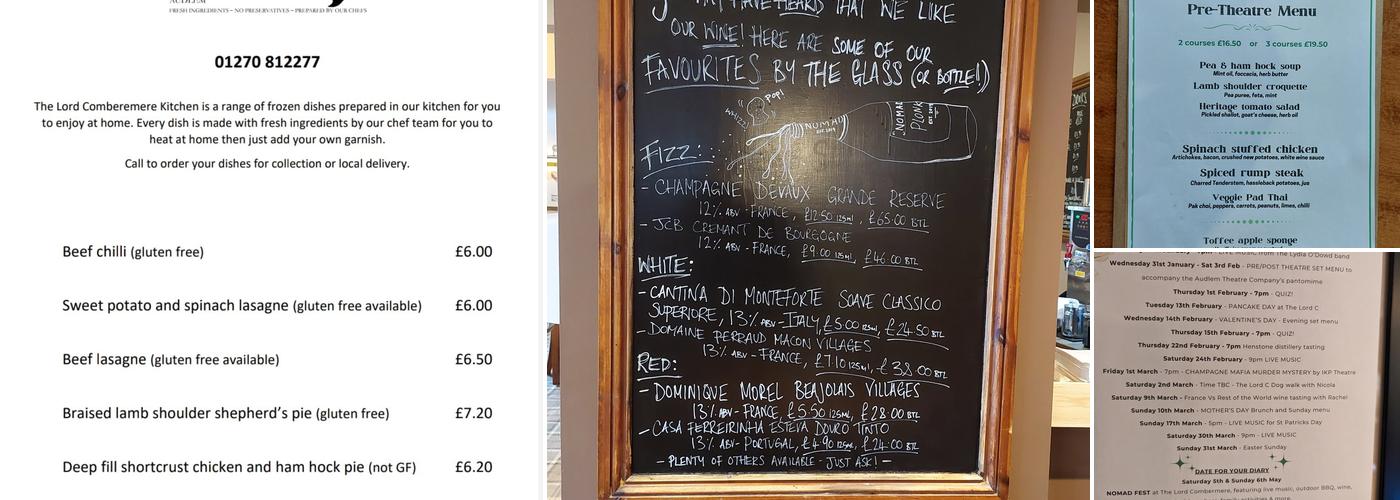 AUDLEM
FRESH INGREDIENTS – NO PRESERVATIVES – PREPARED BY OUR CHEFS
01270 812277
The Lord Comberemere Kitchen is a range of frozen dishes prepared in our kitchen for you
to enjoy at home. Every dish is made with fresh ingredients by our chef team for you to
heat at home then just add your own garnish.
Call to order your dishes for collection or local delivery.
Beef chilli (gluten free) £6.00
Sweet potato and spinach lasagne (gluten free available) £6.00
Beef lasagne (gluten free available) £6.50
Braised lamb shoulder shepherd's pie (gluten free) £7.20
Deep fill shortcrust chicken and ham hock pie (not GF) £6.20
HAVE HEARD THAT WE LIKE
OUR WINE! HERE ARE SOME OF OUR
FAVOURITES BY THE GLASS (OR BOTTLE!)
POP!
WHIZZ!
NOMAD
NOMAD
PLONK
FIZZ:
- CHAMPAGNE DEVAUX GRANDE RESERVE
12% ABV - FRANCE, £12.50 125ml, £65.00 BTL
- JCB CREMANT DE BOURGOGNE
12% ABV - FRANCE, £9.00 125ml, £46.00 BTL
WHITE:
- CANTINA DI MONTEFORTE SOAVE CLASSICO
SUPERIORE, 13% ABV - ITALY, £5.00 125ml, £24.50 BTL
- DOMAINE PERRAUD MACON VILLAGES
13% ABV - FRANCE, £7.10 125ml, £38.00 BTL
RED:
- DOMINIQUE MOREL BEAJOLAIS VILLAGES
13% ABV - FRANCE, £5.50 125ml, £28.00 BTL
- CASA FERREIRINHA ESTEVA DOURO TINTO
13% ABV - PORTUGAL, £4.90 125ml, £24.00 BTL
- PLENTY OF OTHERS AVAILABLE - JUST ASK! -
Pre-Theatre Menu
2 courses £16.50 or 3 courses £19.50
Pea & ham hock soup
Mint oil, foccacia, herb butter
Lamb shoulder croquette
Pea puree, feta, mint
Heritage tomato salad
Pickled shallot, goat's cheese, herb oil
Spinach stuffed chicken
Artichokes, bacon, crushed new potatoes, white wine sauce
Spiced rump steak
Charred Tenderstem, hassleback potatoes, jus
Veggie Pad Thai
Pak choi, peppers, carrots, peanuts, limes, chilli
Toffee apple sponge
LIVE MUSIC, from The Lydia O'Dowd band
Wednesday 31st January - Sat 3rd Feb - PRE/POST THEATRE SET MENU to
accompany the Audlem Theatre Company's pantomime
Thursday 1st February - 7pm - QUIZ!
Tuesday 13th February - PANCAKE DAY at The Lord C
Wednesday 14th February - VALENTINE'S DAY - Evening set menu
Thursday 15th February - 7pm - QUIZ!
Thursday 22nd February - 7pm Henstone distillery tasting
Saturday 24th February - 9pm LIVE MUSIC
Friday 1st March - 7pm - CHAMPAGNE MAFIA MURDER MYSTERY by IKP Theatre
Saturday 2nd March - Time TBC - The Lord C Dog walk with Nicola
Saturday 9th March - France Vs Rest of the World wine tasting with Rachel
Sunday 10th March - MOTHER'S DAY Brunch and Sunday menu
Sunday 17th March - 5pm - LIVE MUSIC for St Patricks Day
Saturday 30th March - 9pm - LIVE MUSIC
Sunday 31st March - Easter Sunday
DATE FOR YOUR DIARY
Saturday 5th & Sunday 6th May
NOMAD FEST at The Lord Combermere, featuring live music, outdoor BBQ, wine,